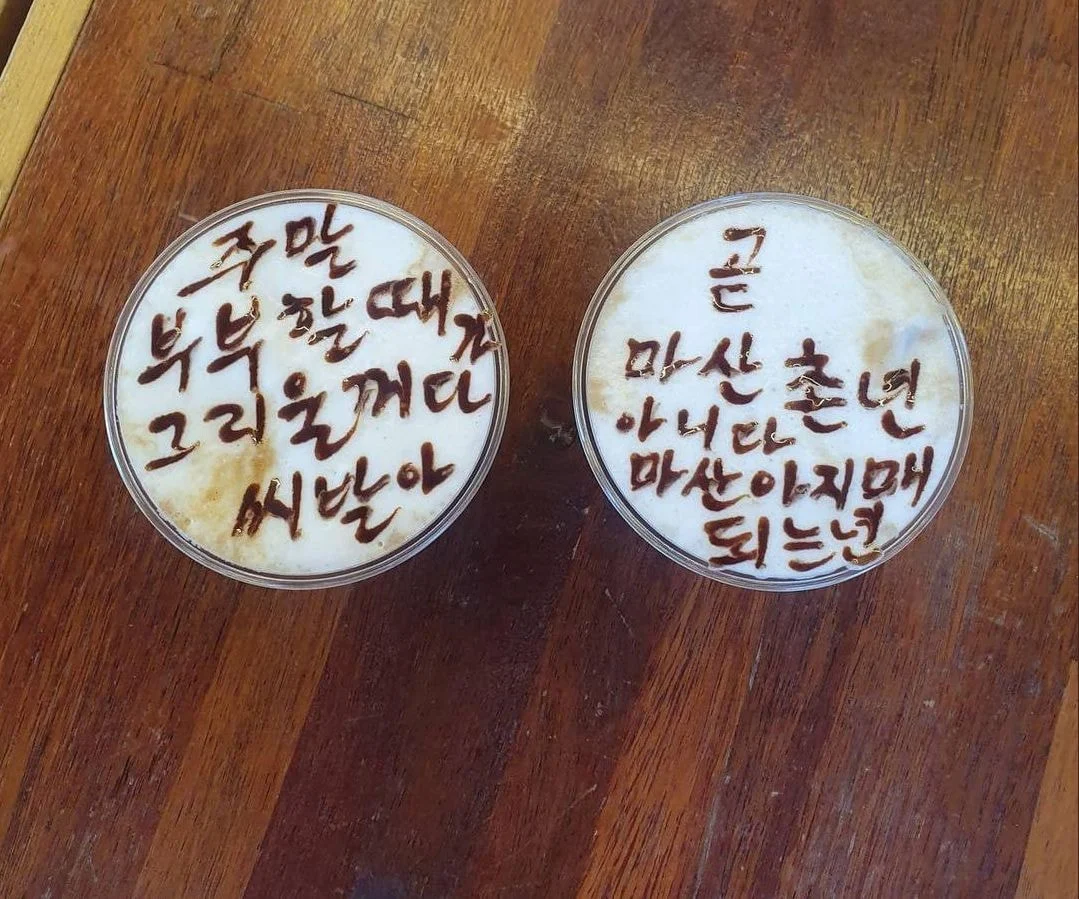 주말
부부할때가
그리울꺼다
씨발아
곧
마산촌년
아니다
마산아지매
되는년